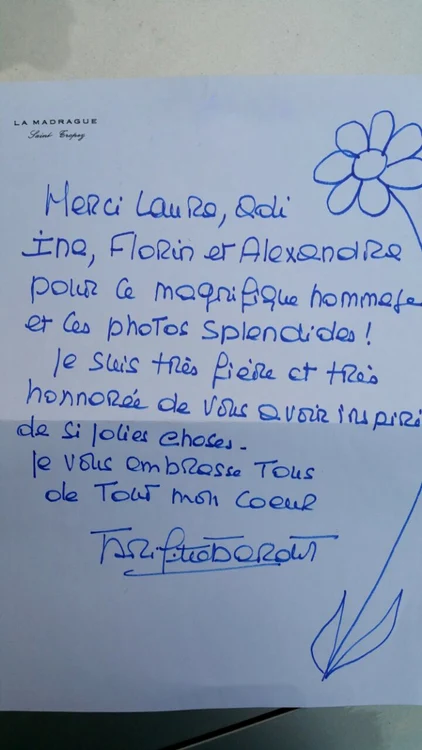 LA MADRAGUE
Saint Tropez
Merci Laura, Adi
Ina, Florin et Alexandra
pour ce magnifique hommage
et ces photos splendides !
Je suis très fière et très
honnorée de vous avoir inspiré
de si jolies choses.
Je vous embrasse Tous
de Tout mon coeur
Brigitte Bardot